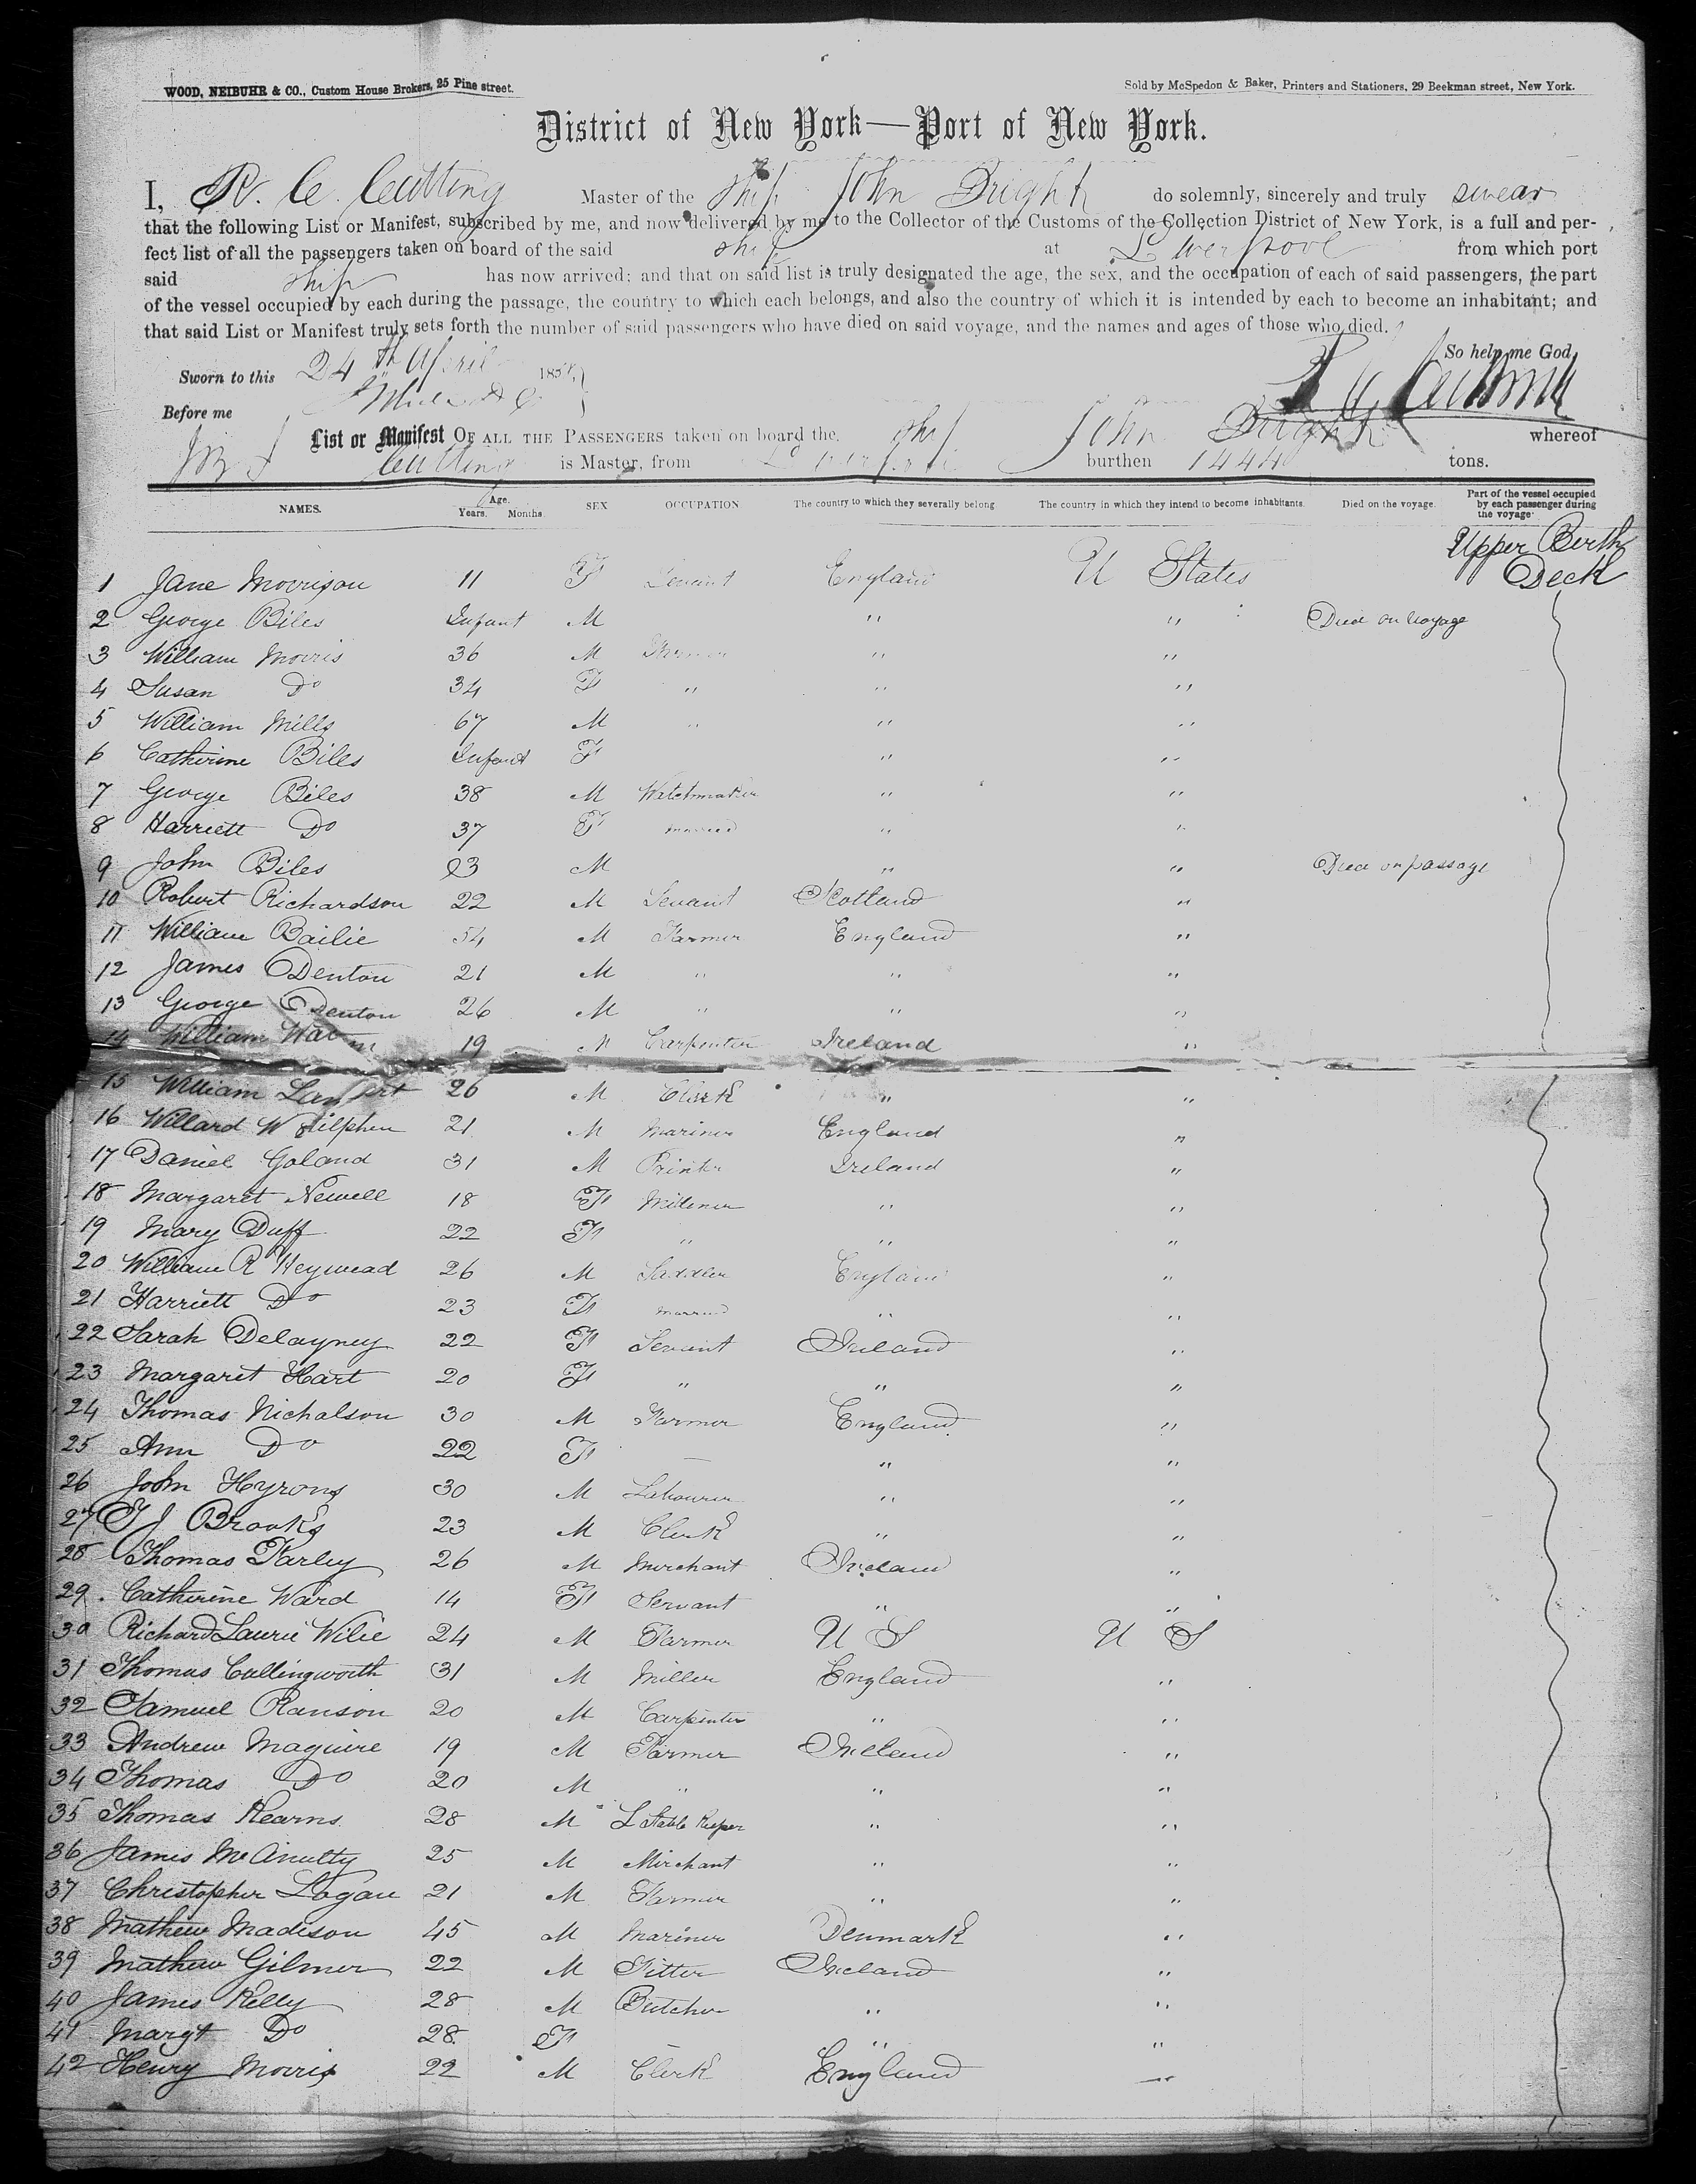 WOOD, NEIBUHR & CO., Custom House Brokers, 25 Pine street.
Sold by McSpedon & Baker, Printers and Stationers, 29 Beekman street, New York.
District of New York—Port of New York.
I, R. C. Cutting Master of the ship John Bright do solemnly, sincerely and truly swear
that the following List or Manifest, subscribed by me, and now delivered by me to the Collector of the Customs of the Collection District of New York, is a full and per-
fect list of all the passengers taken on board of the said ship at Liverpool from which port
said ship has now arrived; and that on said list is truly designated the age, the sex, and the occupation of each of said passengers, the part
of the vessel occupied by each during the passage, the country to which each belongs, and also the country of which it is intended by each to become an inhabitant; and
that said List or Manifest truly sets forth the number of said passengers who have died on said voyage, and the names and ages of those who died.
So help me God,
Sworn to this 24th April 185
Before me
List or Manifest OF ALL THE PASSENGERS taken on board the ship John Bright whereof
Cutting is Master, from Liverpool burthen 1444 tons.
NAMES. Age. Years. Months. SEX OCCUPATION The country to which they severally belong. The country in which they intend to become inhabitants. Died on the voyage. Part of the vessel occupied by each passenger during the voyage.
Upper Berth Deck
1 Jane Morrison 11 F Servant England U States
2 George Biles Infant M " " Died on Voyage
3 William Morris 36 M " "
4 Susan Do 34 F " " "
5 William Mills 67 M " " "
6 Catherine Biles Infant F " "
7 George Biles 38 M Watchmaker " "
8 Harriett Do 37 F married " "
9 John Biles 23 M " " Died on passage
10 Robert Richardson 22 M Servant Scotland "
11 William Bailie 54 M Farmer England "
12 James Denton 21 M " " "
13 George Denton 26 M " " "
14 William 19 M Carpenter Ireland "
15 William 26 M Clerk " "
16 Willard W 21 M Mariner England "
17 Daniel Goland 31 M Printer Ireland "
18 Margaret Newell 18 F Millener " "
19 Mary Duff 22 F " " "
20 William R Heywead 26 M Saddler England "
21 Harriett Do 23 F married " "
22 Sarah Delayney 22 F Servant Ireland "
23 Margaret Hart 20 F " " "
24 Thomas Nichalson 30 M Farmer England "
25 Ann Do 22 F — " "
26 John Hyrons 30 M Labourer " "
27 T J Brooks 23 M Clerk " "
28 Thomas Farley 26 M Merchant Ireland "
29 Catherine Ward 14 F Servant " "
30 Richard Laurie Wilie 24 M Farmer U S U S
31 Thomas Cullingworth 31 M Miller England "
32 Samuel Ranson 20 M Carpenter " "
33 Andrew Maguire 19 M Farmer Ireland "
34 Thomas Do 20 M " " "
35 Thomas Kearns 28 M L Stable Keeper " "
36 James McAnutty 25 M Merchant " "
37 Christopher Logan 21 M Farmer " "
38 Mathew Madison 45 M Mariner Denmark "
39 Mathew Gilmer 22 M Fitter Ireland "
40 James Kelly 28 M Butcher " "
41 Margt Do 28 F — " "
42 Henry Morris 22 M Clerk England "